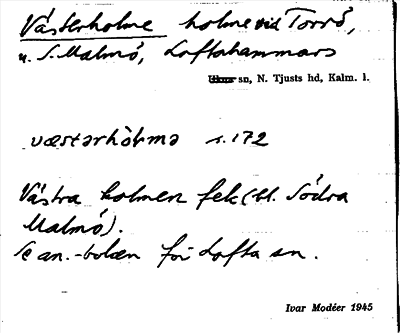 Västerholme holme vid Torrö,
n. S. Malmö, Loftahammars
sn, N. Tjusts hd, Kalm. l.
væstərhòlmə s. 172
Västra holmen fek (bl. Södra
Malmö).
Se an.-bolæn för Lofta sn.
Ivar Modéer 1945